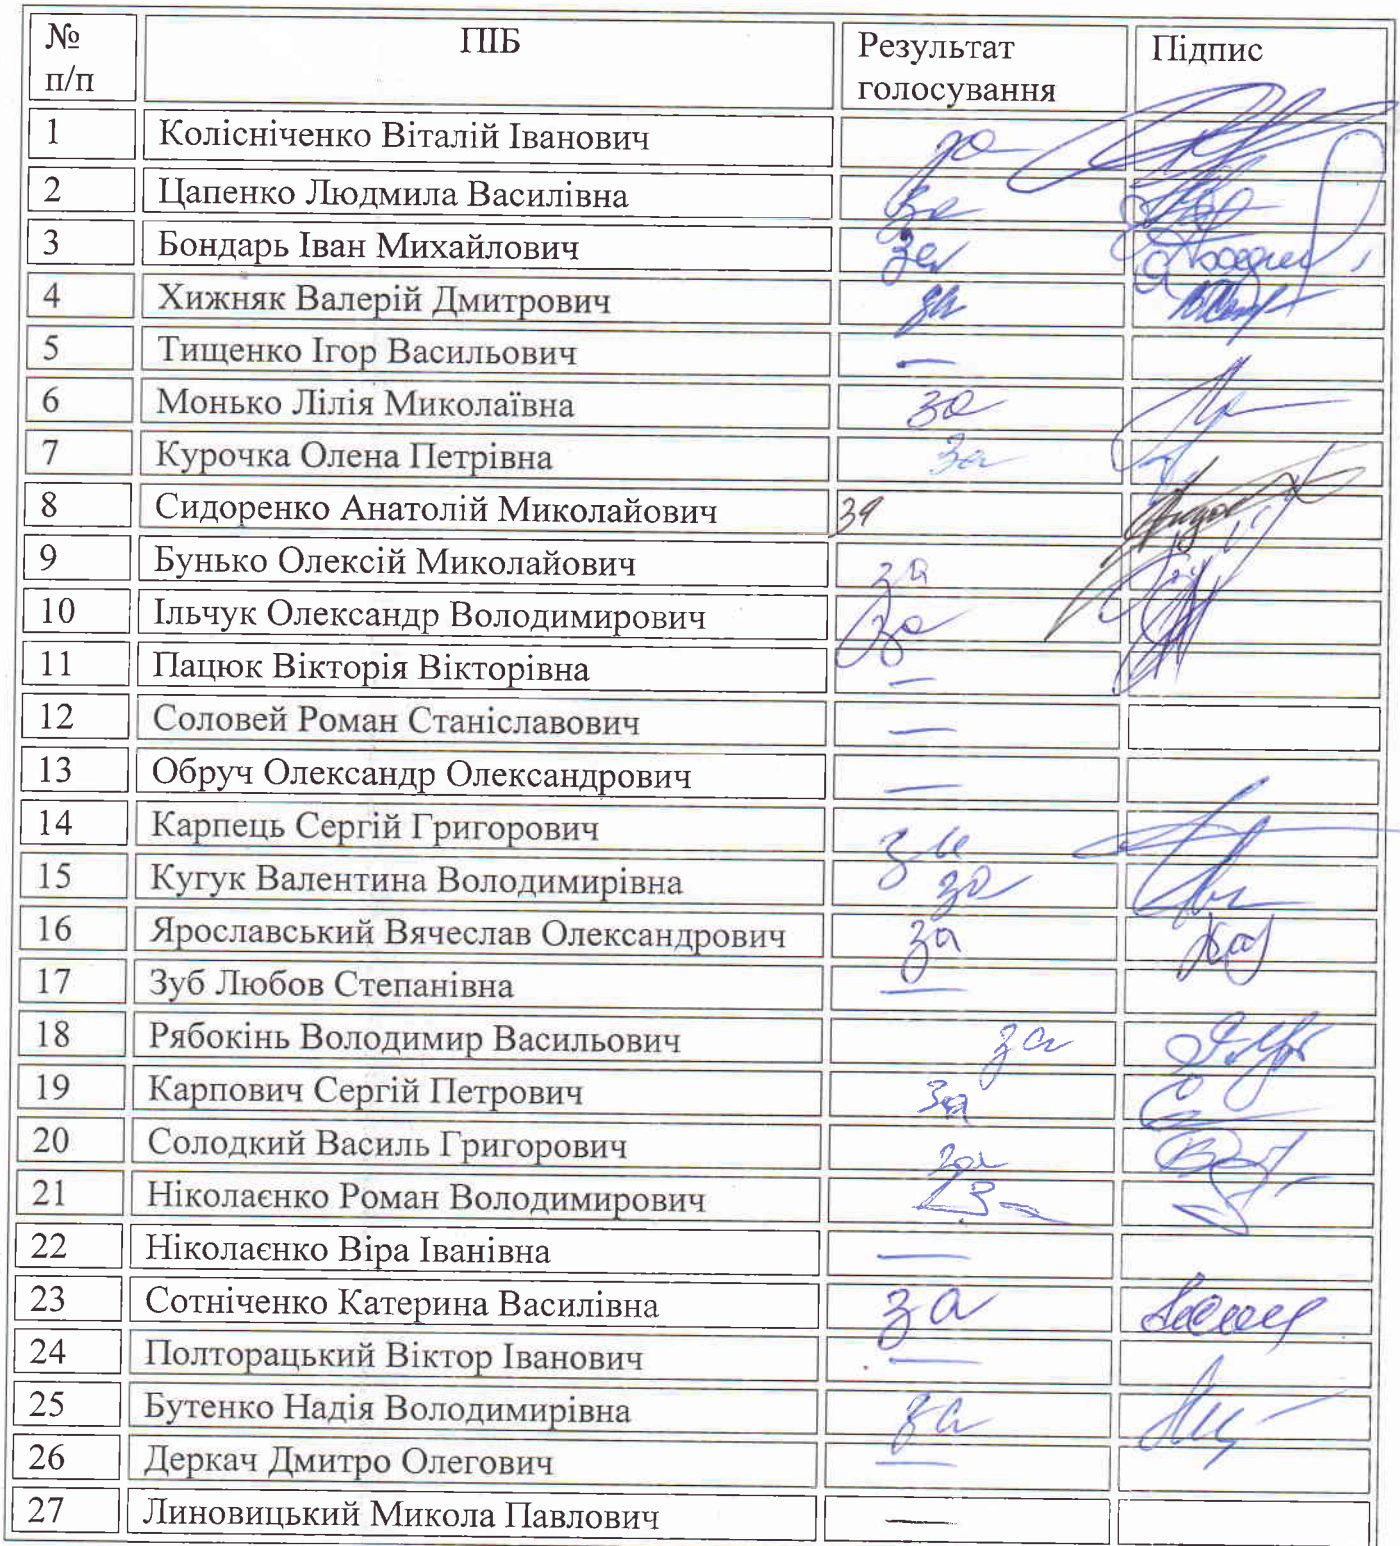 № п/п ПІБ Результат голосування Підпис
1 Колісніченко Віталій Іванович за
2 Цапенко Людмила Василівна за
3 Бондарь Іван Михайлович за
4 Хижняк Валерій Дмитрович за
5 Тищенко Ігор Васильович —
6 Монько Лілія Миколаївна за
7 Курочка Олена Петрівна за
8 Сидоренко Анатолій Миколайович за
9 Бунько Олексій Миколайович за
10 Ільчук Олександр Володимирович за
11 Пацюк Вікторія Вікторівна —
12 Соловей Роман Станіславович —
13 Обруч Олександр Олександрович —
14 Карпець Сергій Григорович за
15 Кугук Валентина Володимирівна за
16 Ярославський Вячеслав Олександрович за
17 Зуб Любов Степанівна —
18 Рябокінь Володимир Васильович за
19 Карпович Сергій Петрович за
20 Солодкий Василь Григорович за
21 Ніколаєнко Роман Володимирович
22 Ніколаєнко Віра Іванівна —
23 Сотніченко Катерина Василівна за
24 Полторацький Віктор Іванович —
25 Бутенко Надія Володимирівна за
26 Деркач Дмитро Олегович —
27 Линовицький Микола Павлович —